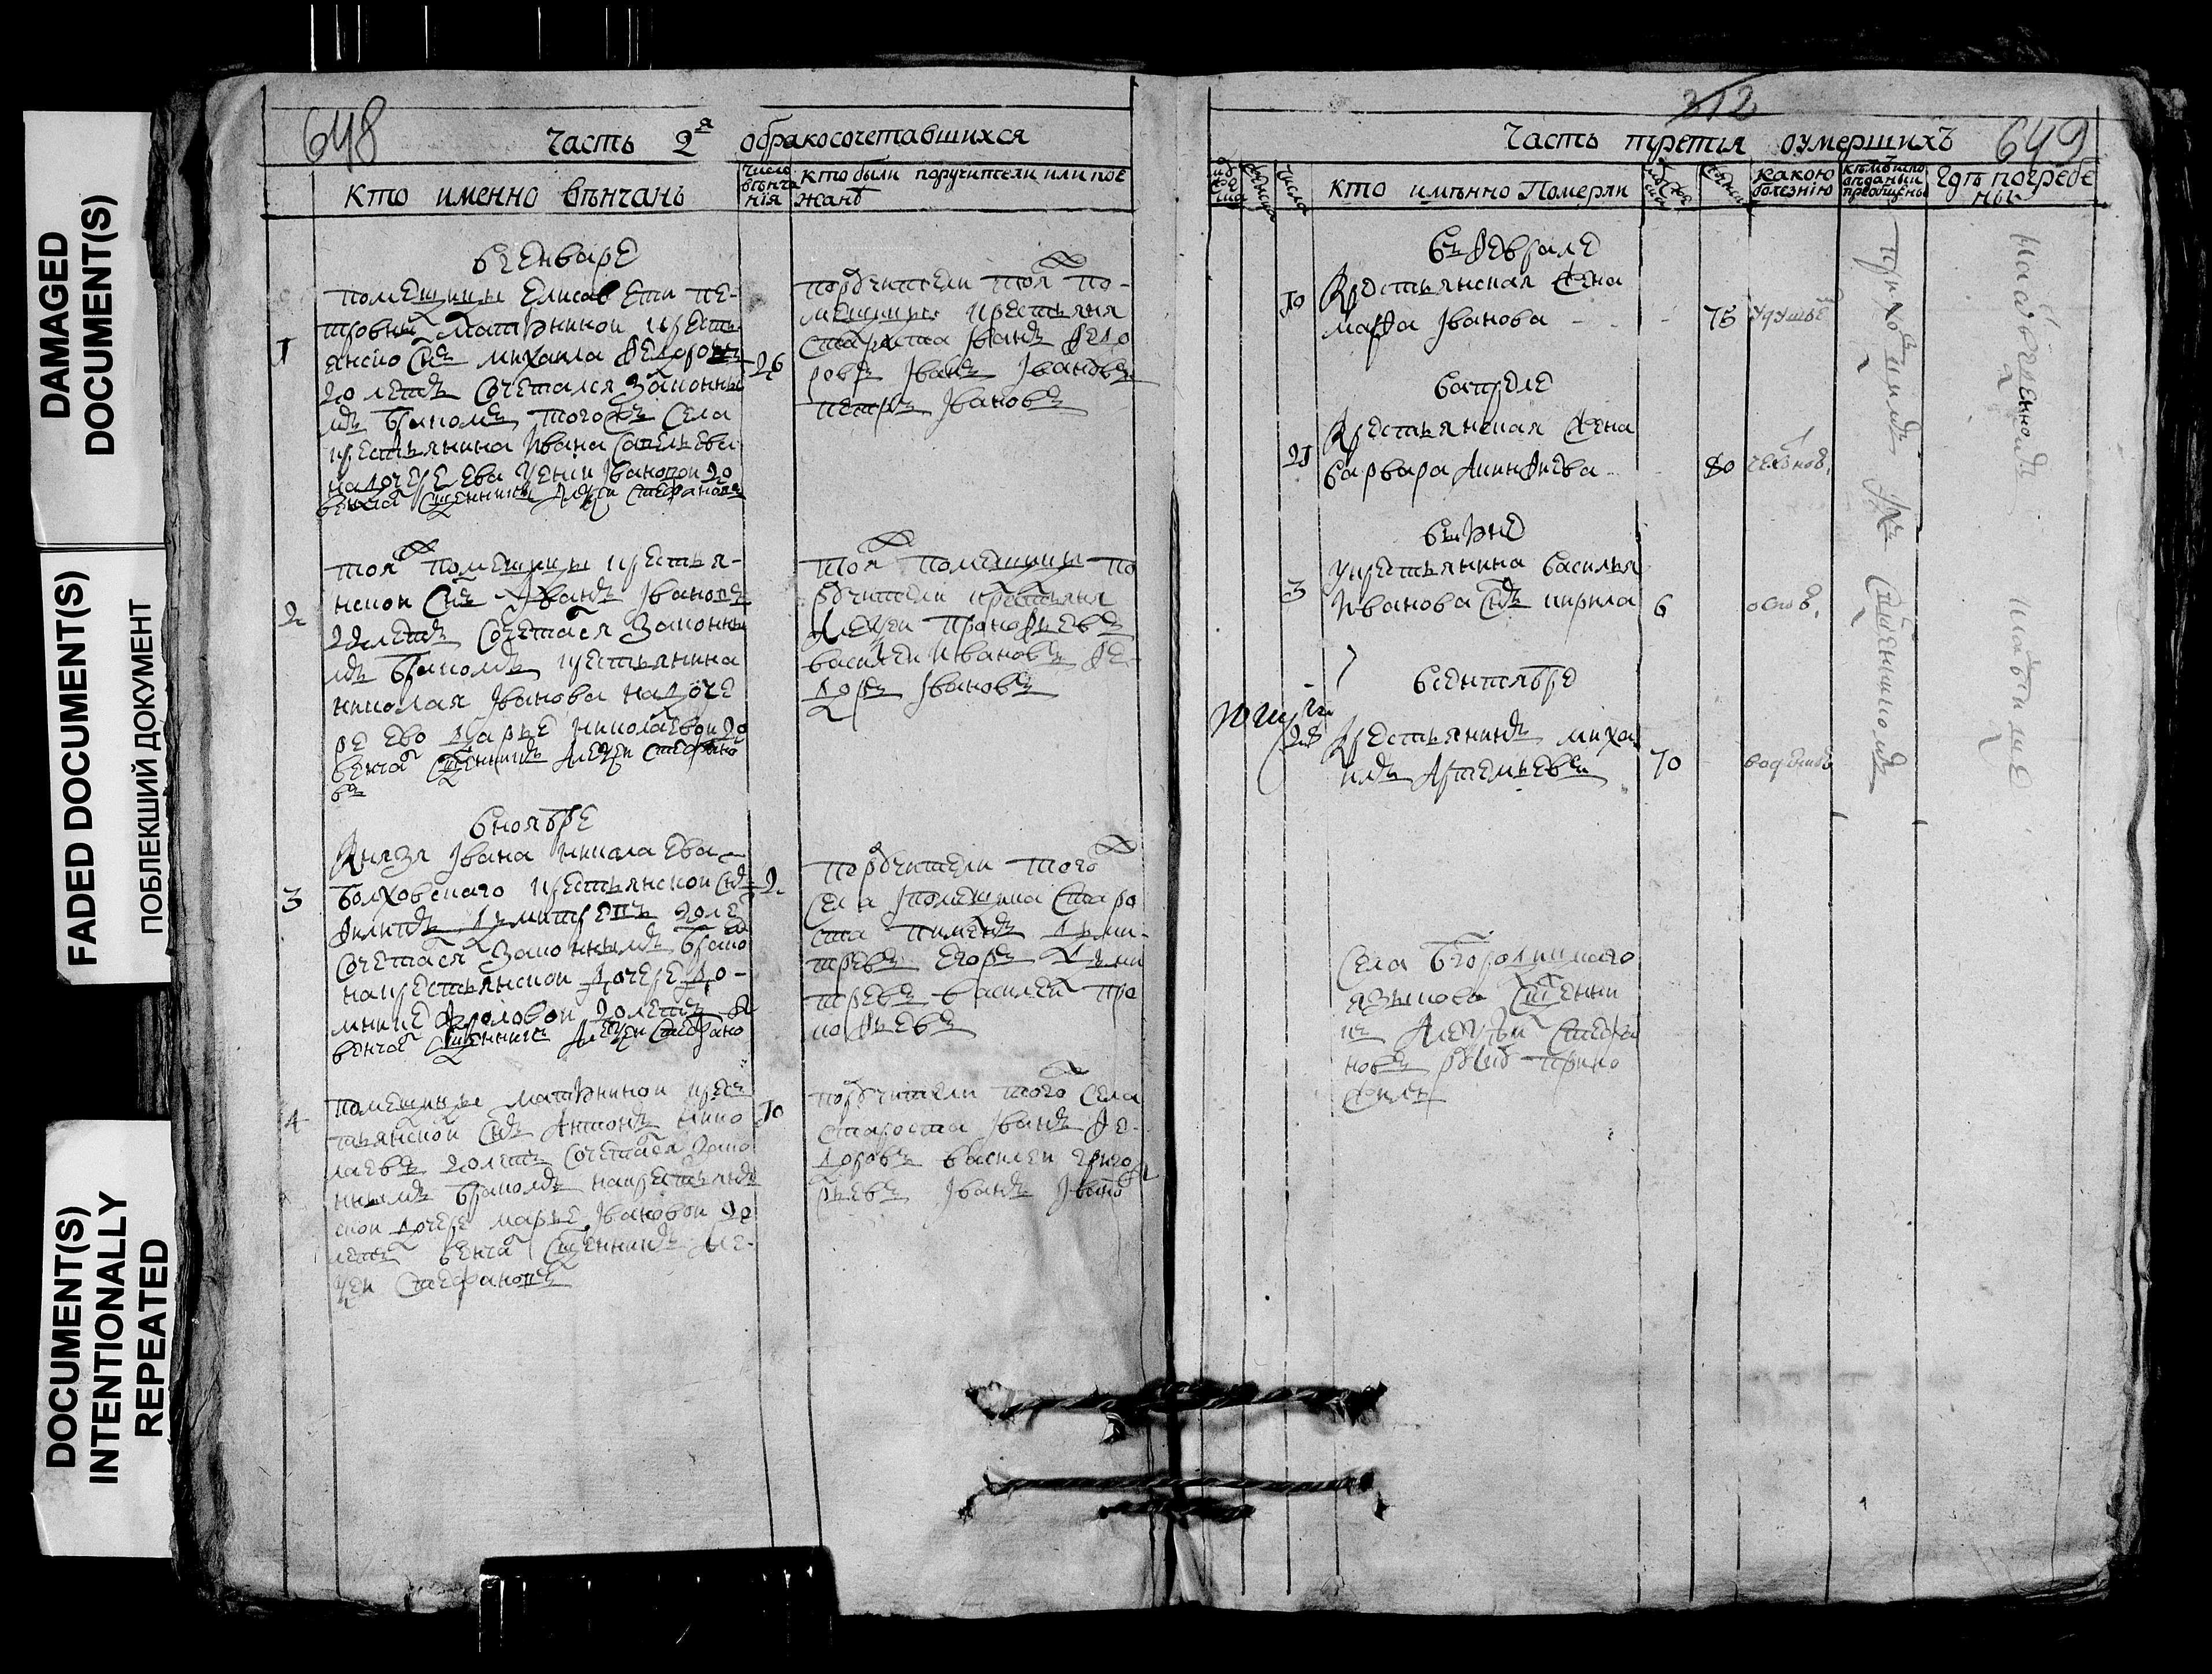 DAMAGED
DOCUMENT(S)
FADED DOCUMENT(S)
ПОБЛЕКШИЙ ДОКУМЕНТ
DOCUMENT(S)
INTENTIONALLY
REPEATED
648
Часть 2я обракосочетавшихся
кто именно вѣнчанъ
число
вѣнча
нія
кто были поручители или пое
жанѣ
в генваре
1
помещицы Елисавети пе-
тровны матюниной кресть
янско снъ михаила Федоровъ
20 летъ сочетался законны
мъ бракомъ того жъ села
крестьянина Ивана савельева
на дочере ева Iванавой 20
венча сщенникъ Алеѯеи Стефановъ
26
порꙋчители тоя ж по-
мещицы крестьяня
староста Iванъ Федо
ровъ Iванъ Iвановъ
петръ Iвановъ
2
тоя ж помещицы крестья-
нскои снъ Iванъ Iвановъ
22 летъ сочетася законны
мъ бракомъ крестьянина
николая Iванова на доче
ре ево дарье николаевои 20
венча сщенникъ Алеѯеи Стефано
въ
тоя ж помещицы по
рꙋчители крестьяня
Алеѯеи прокофьевъ
василеи Ивановъ Фе-
доръ Iвановъ
в ноябре
3
Князя Iвана николаева
болховскаго крестьянскои снъ
Филипъ димитревъ 20 ле
сочетася законнымъ брако
на крестьянскои дочере до-
мнике Фроловои 20 летъ
венча сщенникъ Алеѯеи Стефано
2
порꙋчители того ж
села помещика старо
ста пименъ дими-
тревъ Егоръ дими
тревъ василеи про
кофьевъ
4
помещицы матюнинои крес
тьянскои снъ Антонъ нико
лаевъ 20 летъ сочетася зако
ннымъ бракомъ на крестьян
скои дочере марье Iвановои 20
летъ венча сщенникъ Але-
ѯеи Стефановъ
10
порꙋчители того ж села
староста Iванъ Фе-
доровъ василеи григо
рьевъ Iванъ Iвано
312
649
Часть третія оумершихъ
число
кто имянно Померли
какою
болезнію
кѣмъ исповѣданы
преобщены
гдѣ погребе
ны
въ Феврале
10
Крестьянская жена
марфа Iванова
75
удушье
в апреле
21
Крестьянская жена
варвара
80
въ июне
3
У крестьянина василья
Иванова снъ кирила
6
оспою
в сентябре
28
Крестьянинъ миха
илъ Артемьевъ
70
приходскимъ сщенникомъ
на
села богородицкаго
языкова сщенни
къ Алеѯеи Стефа
новъ рꙋкꙋ прило
жилъ